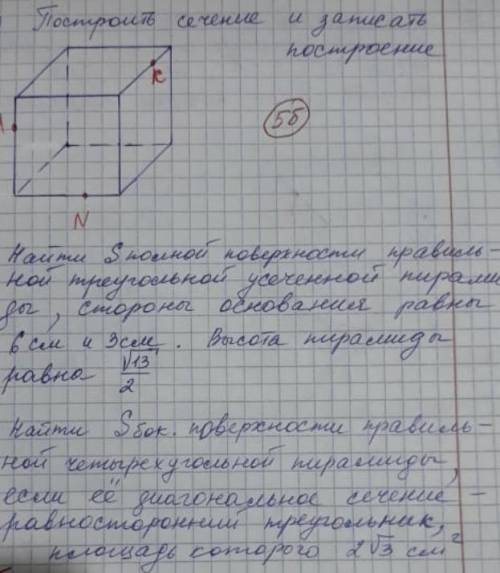 Построить сечение и записать
построение
K
5б
N
Найти Sполной поверхности правиль-
ной треугольной усеченной пирами
ды, стороны основания равны
6 см и 3см. Высота пирамиды
равна √13/2
Найти Sбок. поверхности правиль-
ной четырехугольной пирамиды,
если её диагональное сечение -
равносторонний треугольник,
площадь которого 2√3 см²